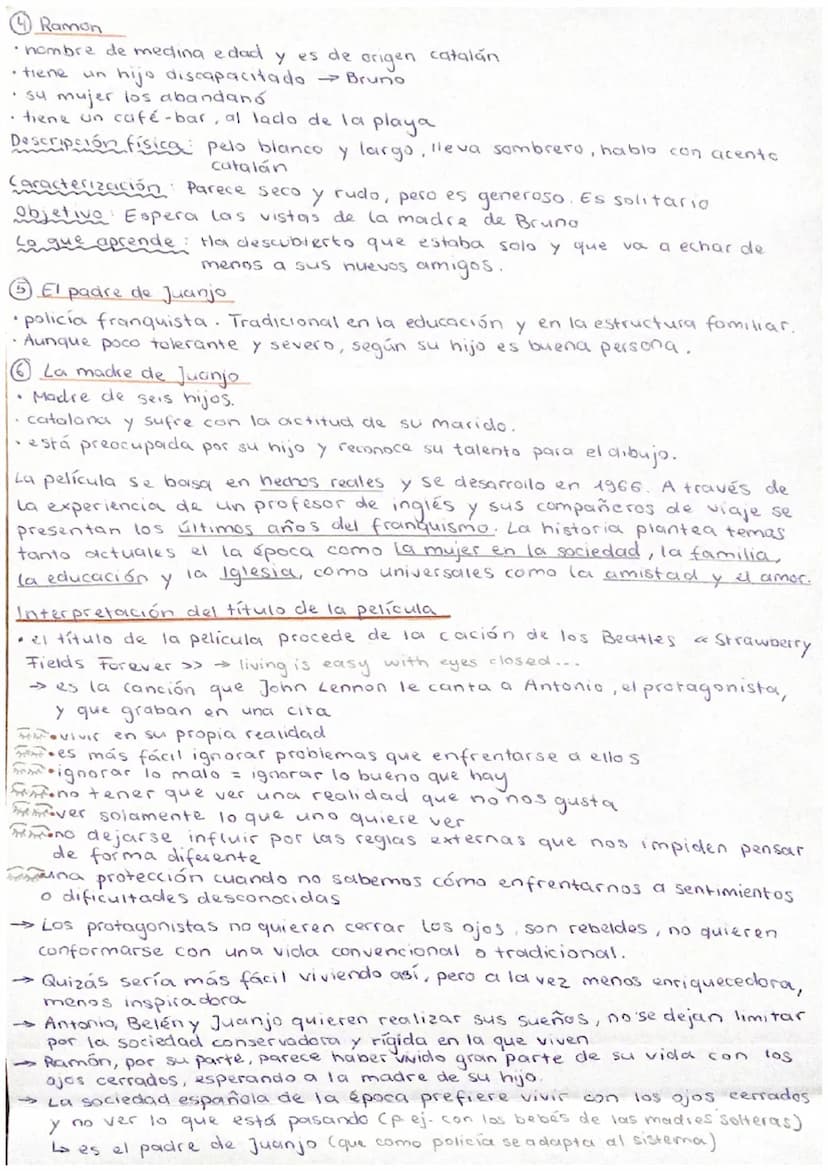 ④ Ramon
• nombre de medina edad y es de origen catalán
• tiene un hijo discapacitado → Bruno
• su mujer los abandanó
• tiene un café-bar, al lado de la playa
Descripción física: pelo blanco y largo, lleva sombrero, hablo con acento
catalán
Caracterización: Parece seco y rudo, pero es generoso. Es solitario
Objetivo: Espera las vistas de la madre de Bruno
Lo que aprende: Ha descubierto que estaba solo y que va a echar de
menos a sus nuevos amigos.
⑤ El padre de Juanjo
• policía franquista. Tradicional en la educación y en la estructura familiar.
• Aunque poco tolerante y severo, según su hijo es buena persona.
⑥ La madre de Juanjo
• Madre de seis hijos.
• catalana y sufre con la actitud de su marido.
• está preocupada por su hijo y reconoce su talento para el dibujo.
La película se basa en hechos reales y se desarrollo en 1966. A través de
la experiencia de un profesor de inglés y sus compañeros de viaje se
presentan los últimos años del franquismo. La historia plantea temas
tanto actuales el la época como la mujer en la sociedad, la familia,
la educación y la Iglesia, como universales como la amistad y el amor.
Interpretación del título de la película
• el título de la película procede de la cación de los Beatles « Strawberry
Fields Forever >> → living is easy with eyes closed...
→ es la canción que John Lennon le canta a Antonio, el protagonista,
y que graban en una cita
• vivir en su propia realidad
• es más fácil ignorar problemas que enfrentarse a ellos
• ignorar lo malo = ignorar lo bueno que hay
• no tener que ver una realidad que no nos gusta
• ver solamente lo que uno quiere ver
• no dejarse influir por las reglas externas que nos impiden pensar
de forma diferente
• una protección cuando no sabemos cómo enfrentarnos a sentimientos
o dificultades desconocidas
→ Los protagonistas no quieren cerrar los ojos, son rebeldes, no quieren
conformarse con una vida convencional o tradicional.
→ Quizás sería más fácil viviendo así, pero a la vez menos enriquecedora,
menos inspiradora
→ Antonio, Belén y Juanjo quieren realizar sus sueños, no se dejan limitar
por la sociedad conservadora y rígida en la que viven
→ Ramón, por su parte, parece haber vivido gran parte de su vida con los
ojos cerrados, esperando a la madre de su hijo.
→ La sociedad española de la época prefiere vivir con los ojos cerrados
y no ver lo que está pasando (p. ej. con los bebés de las madres solteras)
↳ es el padre de Juanjo (que como policía se adapta al sistema)